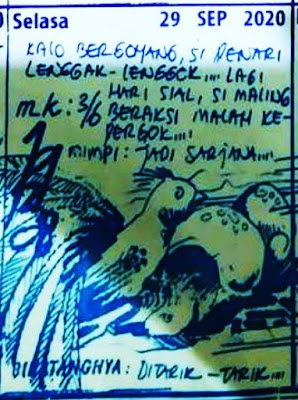 Selasa 29 SEP 2020
KALO BERGOYANG, SI PENARI
LENGGAK-LENGGOK.... LAGI
HARI SIAL, SI MALING
m k : 3/6 BERAKSI MALAH KE-
PERGOK....
MIMPI : JADI SARJANA....
BINATANGNYA : DITARIK-TARIK....